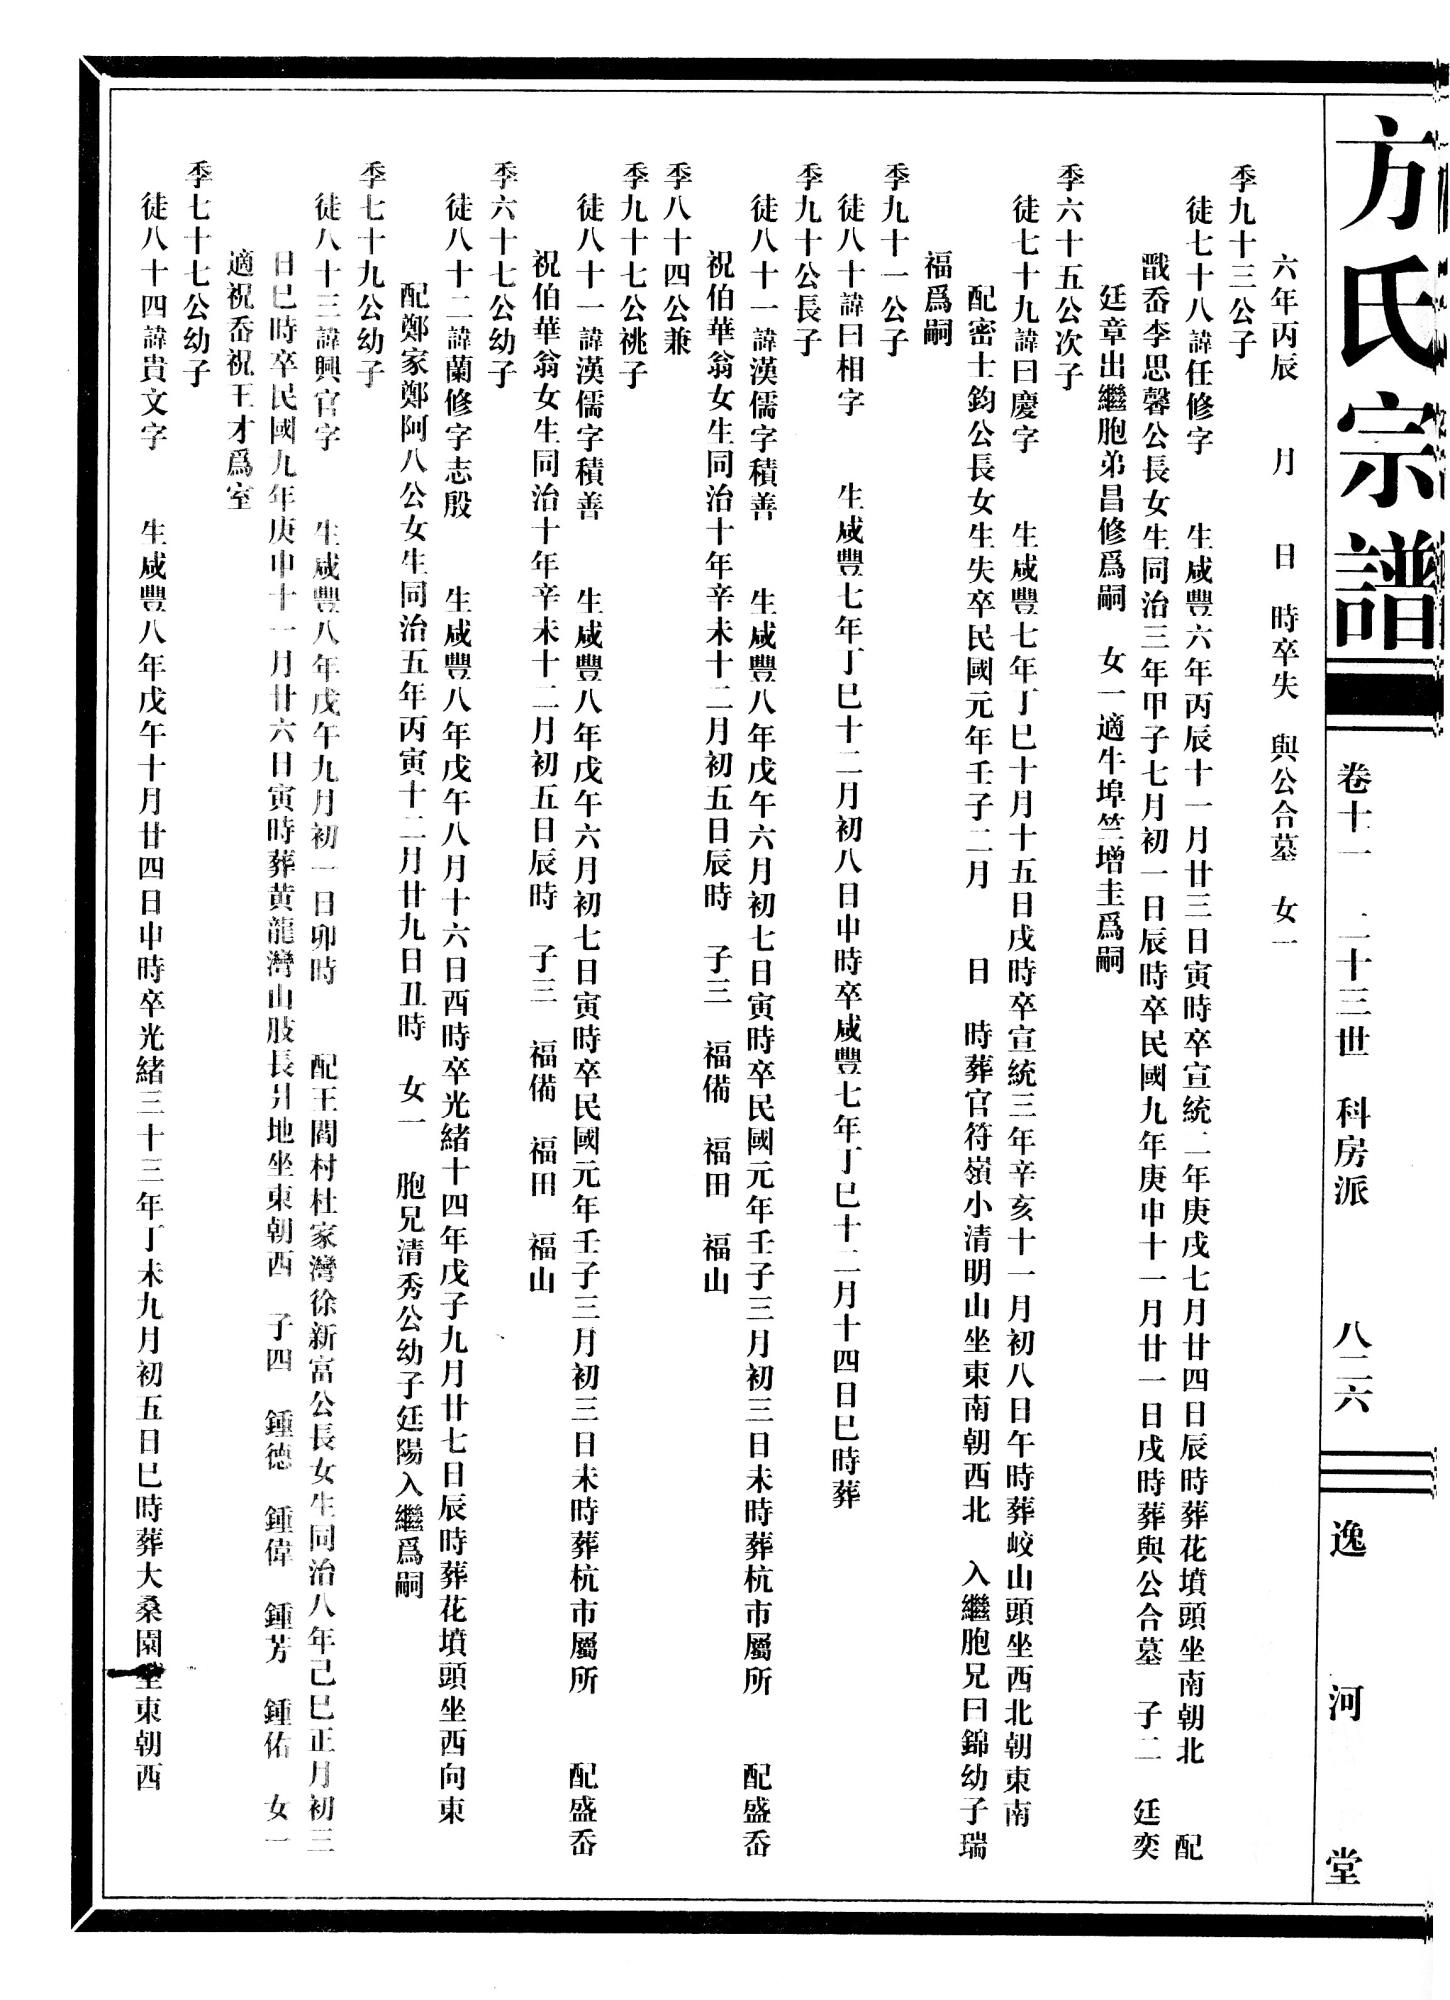 方氏宗譜
卷十一 二十三世 科房派 八二六
逸河堂
六年丙辰 月 日 時卒失 與公合墓 女一
季九十三公子
徒七十八諱任修字 生咸豐六年丙辰十一月廿三日寅時卒宣統二年庚戌七月廿四日辰時葬花墳頭坐南朝北 配
戬岙李思馨公長女生同治三年甲子七月初一日辰時卒民國九年庚申十一月廿一日戌時葬與公合墓 子二 廷奕
廷章出繼胞弟昌修爲嗣 女一適牛埠竺增圭爲嗣
季六十五公次子
徒七十九諱曰慶字 生咸豐七年丁巳十月十五日戌時卒宣統三年辛亥十一月初八日午時葬峧山頭坐西北朝東南
配密士鈞公長女生失卒民國元年壬子二月 日 時葬官符嶺小清明山坐東南朝西北 入繼胞兄曰錦幼子瑞
福爲嗣
季九十一公子
徒八十諱曰相字 生咸豐七年丁巳十二月初八日申時卒咸豐七年丁巳十二月十四日巳時葬
季九十公長子
徒八十一諱漢儒字積善 生咸豐八年戊午六月初七日寅時卒民國元年壬子三月初三日未時葬杭市屬所 配盛岙
祝伯華翁女生同治十年辛未十二月初五日辰時 子三 福備 福田 福山
季八十四公兼
季九十七公祧子
徒八十一諱漢儒字積善 生咸豐八年戊午六月初七日寅時卒民國元年壬子三月初三日未時葬杭市屬所 配盛岙
祝伯華翁女生同治十年辛未十二月初五日辰時 子三 福備 福田 福山
季六十七公幼子
徒八十二諱蘭修字志殷 生咸豐八年戊午八月十六日酉時卒光緒十四年戊子九月廿七日辰時葬花墳頭坐西向東
配鄭家鄭阿八公女生同治五年丙寅十二月廿九日丑時 女一 胞兄清秀公幼子廷陽入繼爲嗣
季七十九公幼子
徒八十三諱興官字 生咸豐八年戊午九月初一日卯時 配王閻村杜家灣徐新富公長女生同治八年己巳正月初三
日巳時卒民國九年庚申十一月廿六日寅時葬黃龍灣山股長爿地坐東朝西 子四 鍾德 鍾偉 鍾芳 鍾佑 女一
適祝岙祝王才爲室
季七十七公幼子
徒八十四諱貴文字 生咸豐八年戊午十月廿四日申時卒光緒三十三年丁未九月初五日巳時葬大桑園坐東朝西